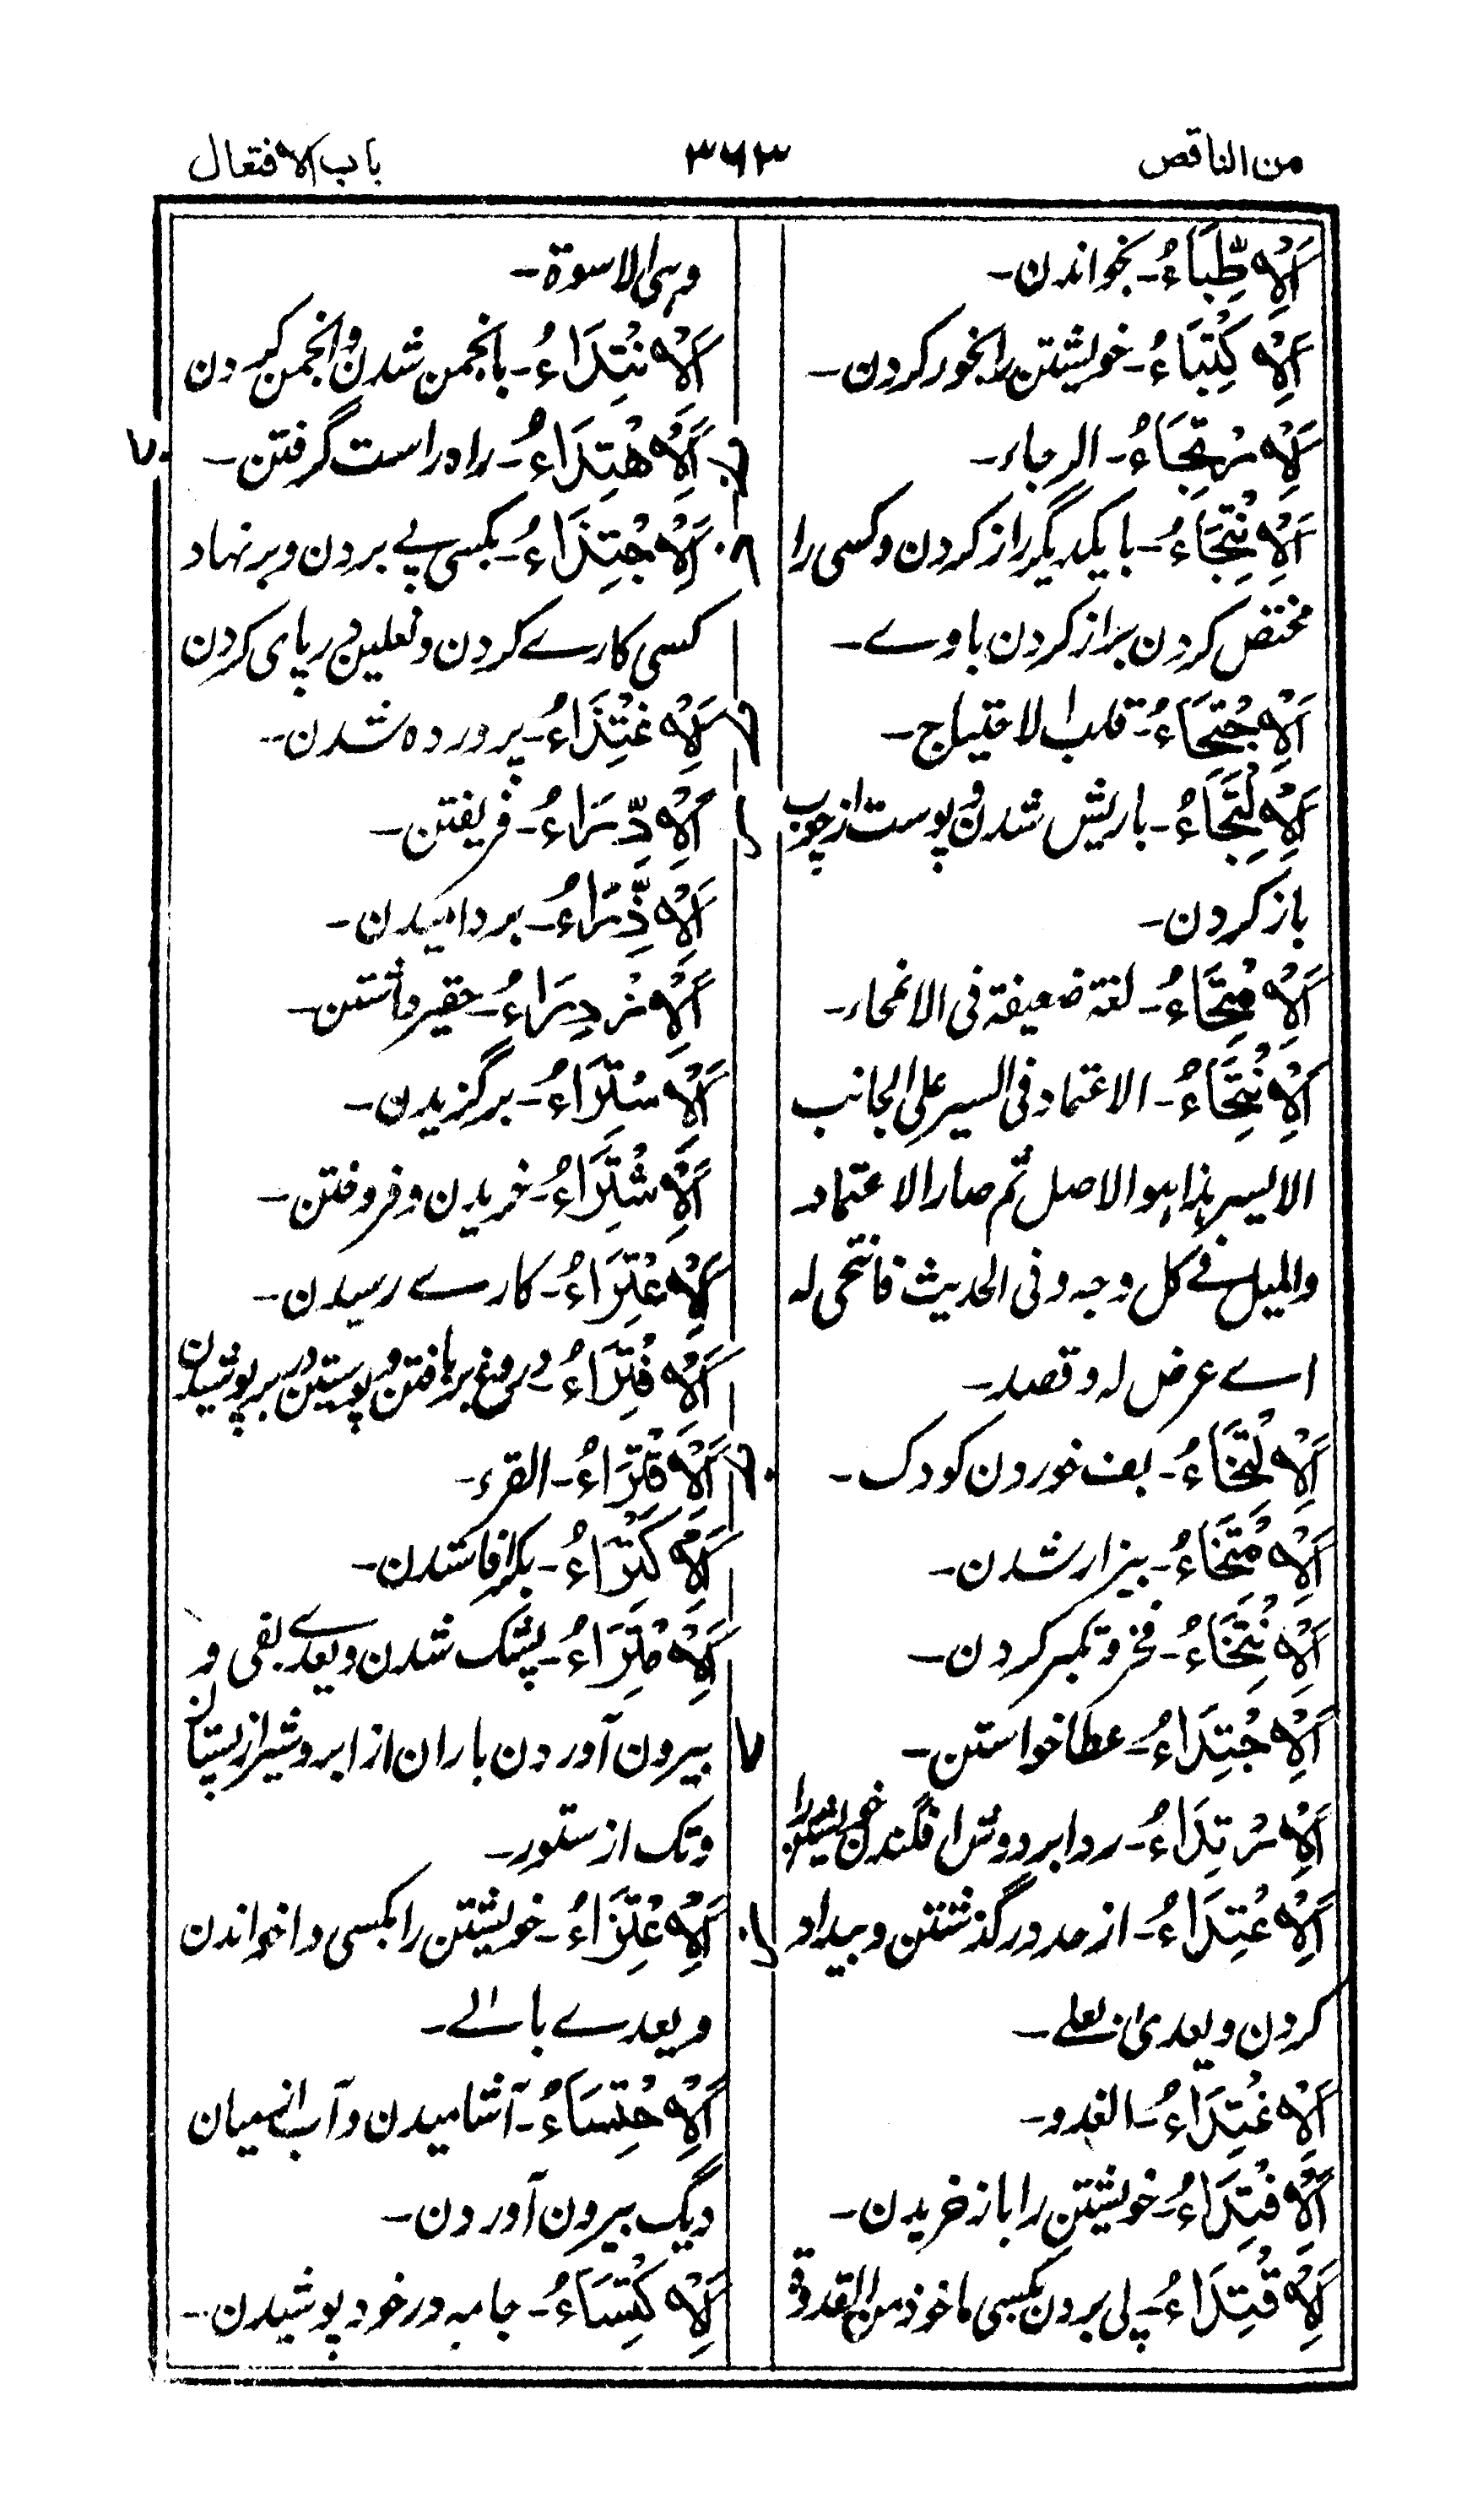 من الناقص
۳۶۳
باب الافتعال
اَلْاِطِّبَاءُ۔ بخواندن۔
اَلْاِكْتِبَاءُ۔ خویشتن را بخور کردن۔
اَلْاِرْتِجَاءُ۔ الرجاء۔
اَلْاِنْتِجَاءُ۔ با یکدیگر راز کردن و کسی را
مختص کردن براز کردن با وے۔
اَلْاِجْتِحَاءُ۔ قلب الاجتیاح۔
اَلْاِلْتِحَاءُ۔ باریش شدن و پوست از چوب
باز کردن۔
اَلْاِمْتِحَاءُ۔ لغة ضعیفة فی الانمحاء۔
اَلْاِنْتِحَاءُ۔ الاعتماد فی السیر علی الجانب
الایسر ہذا ہو الاصل ثم صار الاعتماد
والمیل فے کل وجہ و فی الحدیث فانتحی له
اے عرض له و قصد۔
اَلْاِلْتِخَاءُ۔ خوردن کودک۔
اَلْاِمْتِخَاءُ۔ بیزار شدن۔
اَلْاِنْتِخَاءُ۔ فخر و تکبر کردن۔
اَلْاِجْتِدَاءُ۔ عطا خواستن۔
اَلْاِرْتِدَاءُ۔ ردا بر دوش افگندن
اَلْاِعْتِدَاءُ۔ از حد در گذشتن و بیداد
کردن و یعدی بعلے۔
اَلْاِغْتِدَاءُ۔ الغدو۔
اَلْاِفْتِدَاءُ۔ خویشتن را باز خریدن۔
اَلْاِقْتِدَاءُ۔ پی بردن بکسی ماخوذ من القدوة
وہی الاسوة۔
اَلْاِنْتِدَاءُ۔ بانجمن شدن و انجمن کردن
۷۰
اَلْاِهْتِدَاءُ۔ راہ راست گرفتن۔
اَلْاِحْتِذَاءُ۔ بکسی پے بردن و بر نہاد
کسی کارے کردن و نعلین در پای کردن
اَلْاِغْتِذَاءُ۔ پروردہ شدن۔
اَلْاِدِّرَاءُ۔ فریفتن۔
اَلْاِذِّرَاءُ۔ بر دامیدن۔
اَلْاِزْدِرَاءُ۔ حقیر داشتن۔
اَلْاِسْتِرَاءُ۔ برگزیدن۔
اَلْاِشْتِرَاءُ۔ خریدن و فروختن۔
اَلْاِعْتِرَاءُ۔ کارے رسیدن۔
اَلْاِفْتِرَاءُ۔ دروغ بر بافتن و پوستین در بر پوشیدن
اَلْاِقْتِرَاءُ۔ القرء۔
اَلْاِكْتِرَاءُ۔ بکرا فا ستدن۔
اَلْاِمْتِرَاءُ۔ بشک شدن و یعدے بفی و
بیرون آوردن باران از ابر و شیر از پستان
و تک از ستور۔
اَلْاِعْتِزَاءُ۔ خویشتن را بکسی وا خواندن
و یعدے بالے۔
اَلْاِحْتِسَاءُ۔ آشامیدن و آب از میان
دیگ بیرون آوردن۔
اَلْاِكْتِسَاءُ۔ جامہ در خود پوشیدن۔